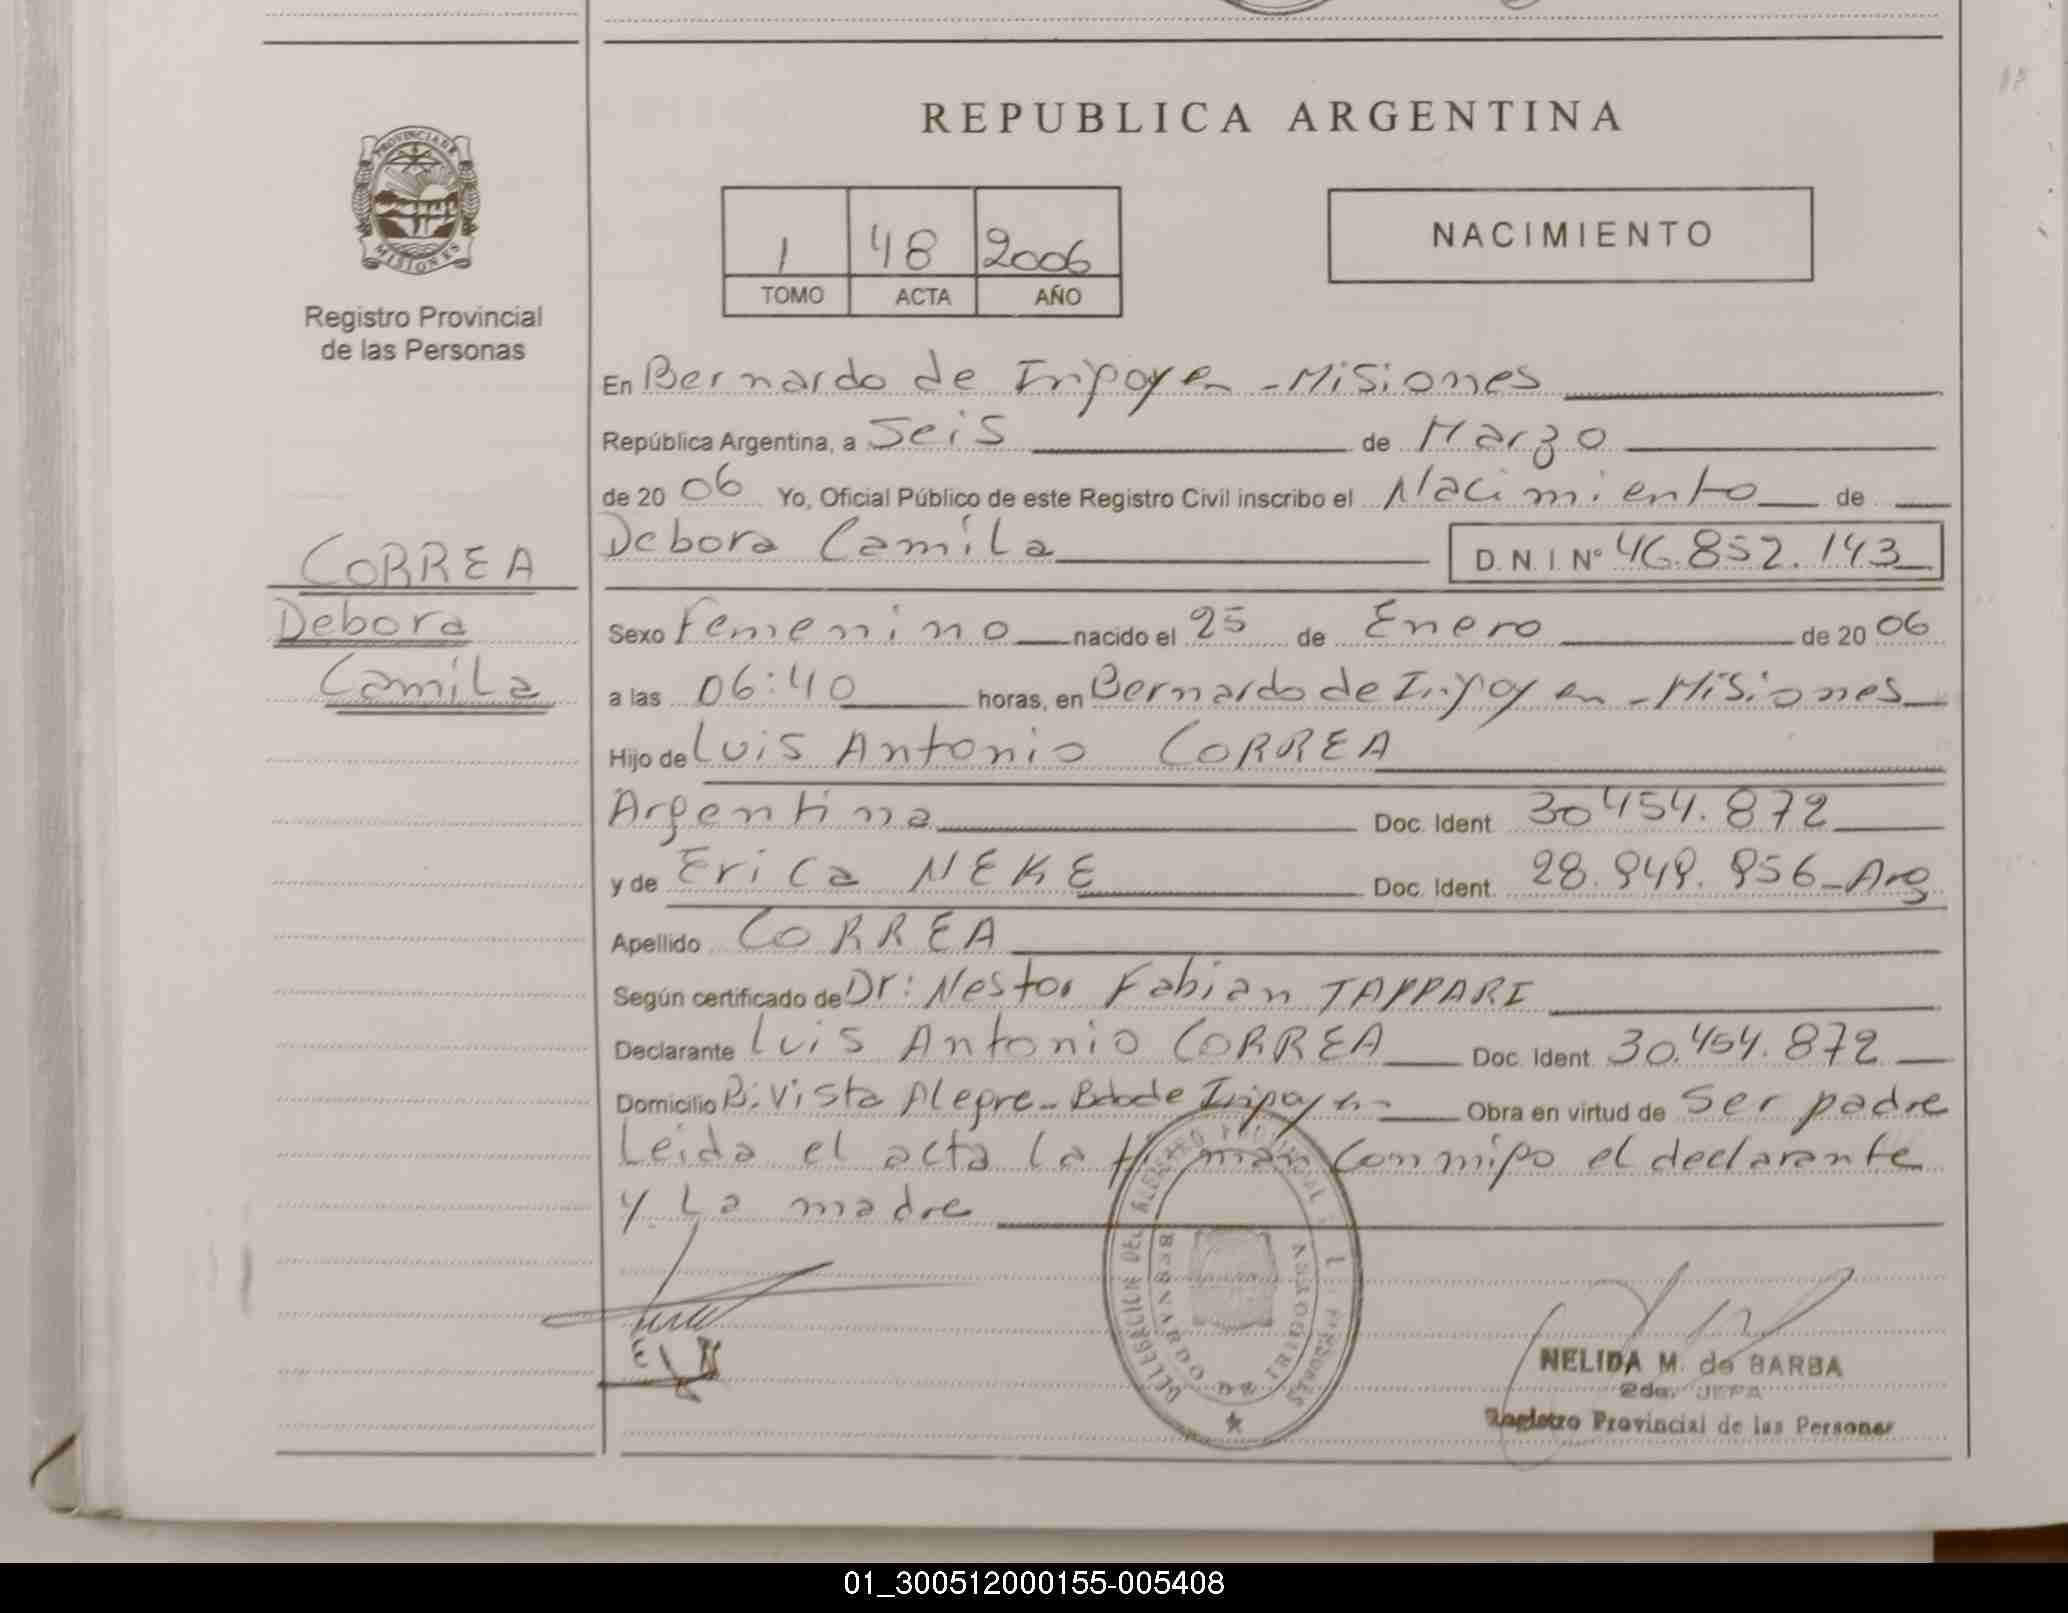 REPUBLICA ARGENTINA
PROVINCIA DE MISIONES
Registro Provincial
de las Personas
1 48 2006
TOMO ACTA AÑO
NACIMIENTO
En Bernardo de Iripoyen - Misiones
República Argentina, a Seis de Marzo
de 20 06 Yo, Oficial Público de este Registro Civil inscribo el Nacimiento de
CORREA
Debora
Camila
Debora Camila D.N.I. Nº 46.852.143
Sexo Femenino nacido el 25 de Enero de 20 06
a las 06:40 horas, en Bernardo de Iripoyen - Misiones
Hijo de Luis Antonio CORREA
Argentina Doc. Ident. 30.454.872
y de Erica NEKE Doc. Ident. 28.949.956 - Arg
Apellido CORREA
Según certificado de Dr: Nestor Fabian TAPPARI
Declarante Luis Antonio CORREA Doc. Ident. 30.454.872
Domicilio B. Vista Alegre - Bdo de Iripoyen - Obra en virtud de ser padre
Leida el acta la firman conmigo el declarante
y la madre
E N
DELEGACION DEL REGISTRO PROVINCIAL PERSONAS
BERNARDO DE IRIGOYEN
NELIDA M. de BARBA
2da. JEFA
Registro Provincial de las Personas
01_300512000155-005408